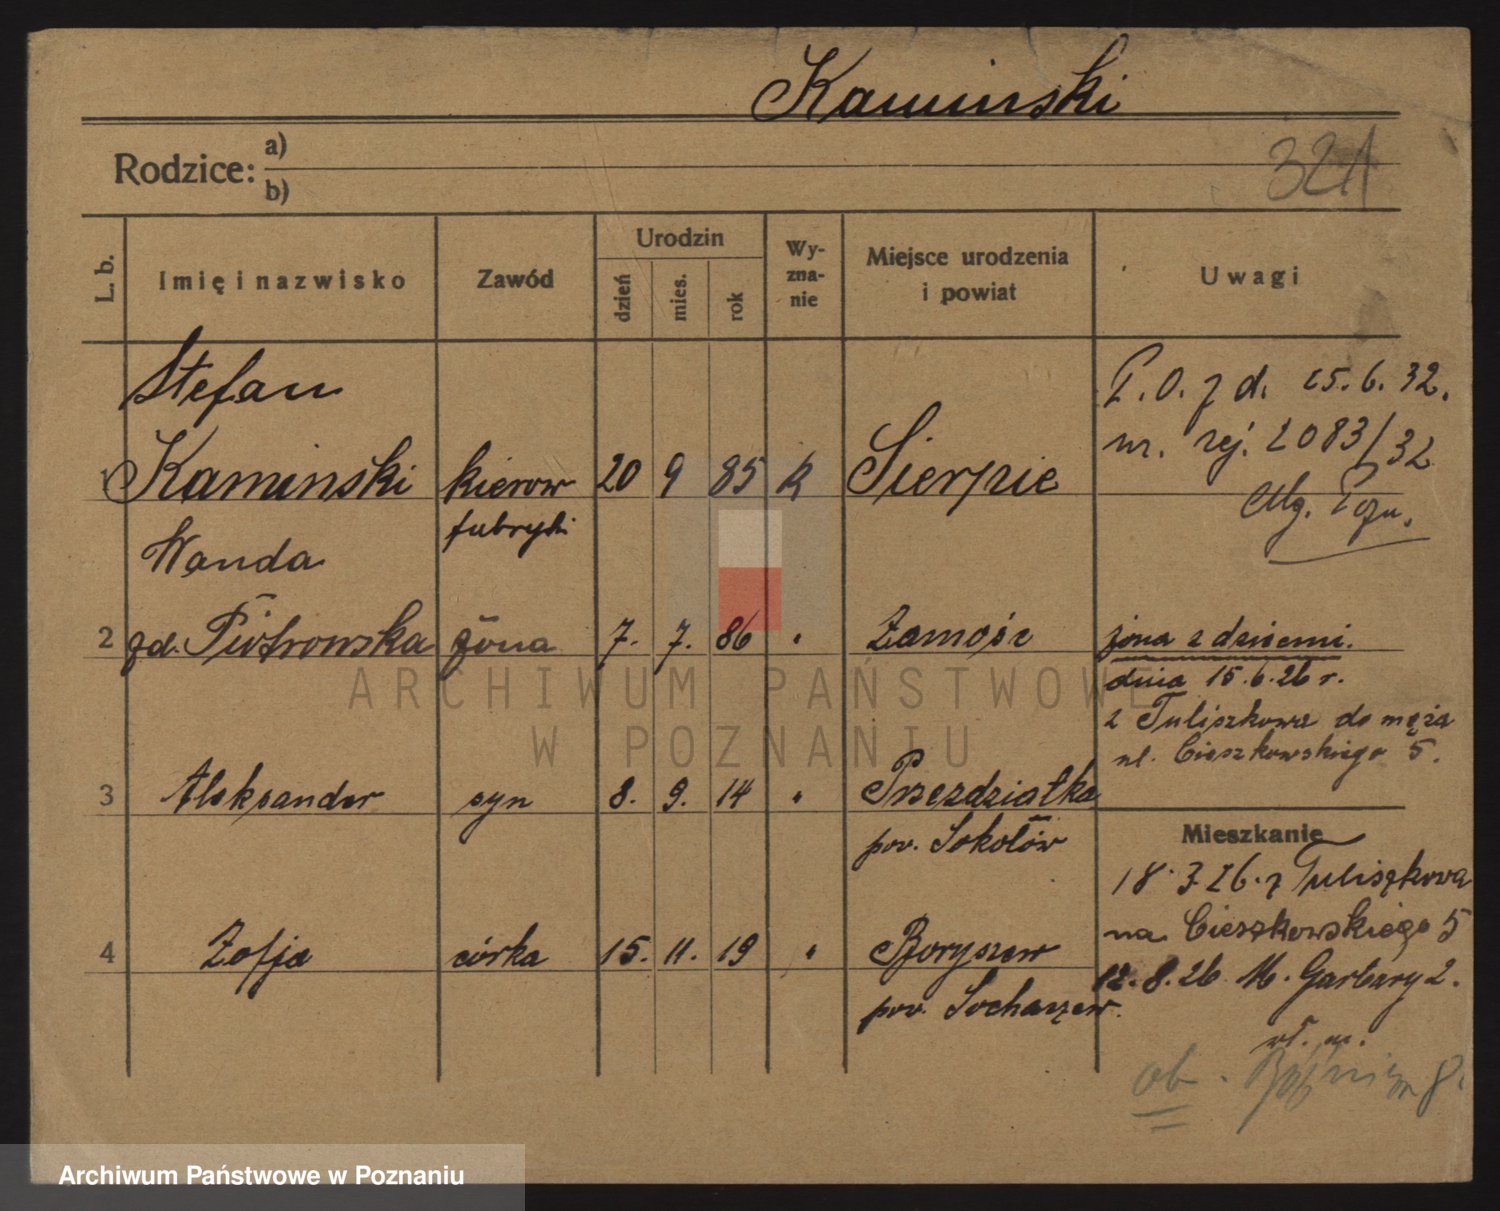 Kaminski
Rodzice: a)
b)
321
L. b.
Imię i nazwisko
Zawód
Urodzin
dzień
mies.
rok
Wy-
zna-
nie
Miejsce urodzenia
i powiat
Uwagi
Stefan
1 Kaminski kierow 20 9 85 k Sierpie
fabryki
P. O. z d. 15.6.32.
nr. rej. 2083/32
Mg. Pozn.
Wanda
2 zd. Piotrowska żona 7. 7. 86 " Zamość
żona z dziećmi.
dnia 15.6.26 r.
z Tuliszkowa do męża
ul. Cieszkowskiego 5.
3 Aleksander syn 8. 9. 14 " Przezdziatka
pow. Sokołów
4 Zofja córka 15. 11. 19 " Boryszew
pow. Sochaczew.
Mieszkanie
18.3.26. z Tuliszkowa
na Cieszkowskiego 5
12.8.26 M. Garbary 2.
wł. m.
ob.
ARCHIWUM PAŃSTWOWE
W POZNANIU
Archiwum Państwowe w Poznaniu